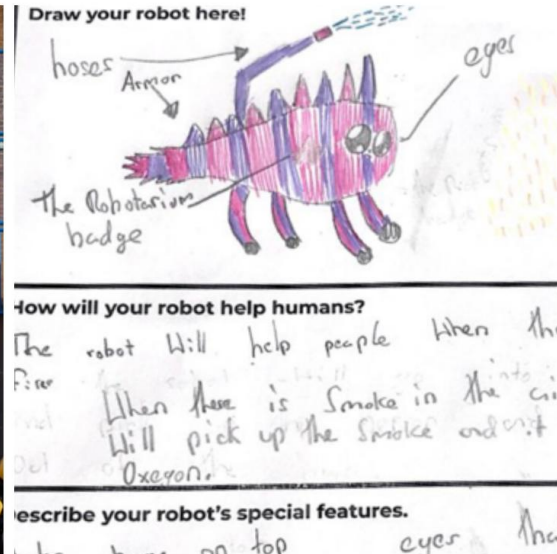 Draw your robot here!
hoses
Armor
eyes
The Robotarium
badge
How will your robot help humans?
The robot Will help people When
Fire
When there is Smoke in the
Will pick up the Smoke and
Oxegon.
escribe your robot's special features.
on top eyes